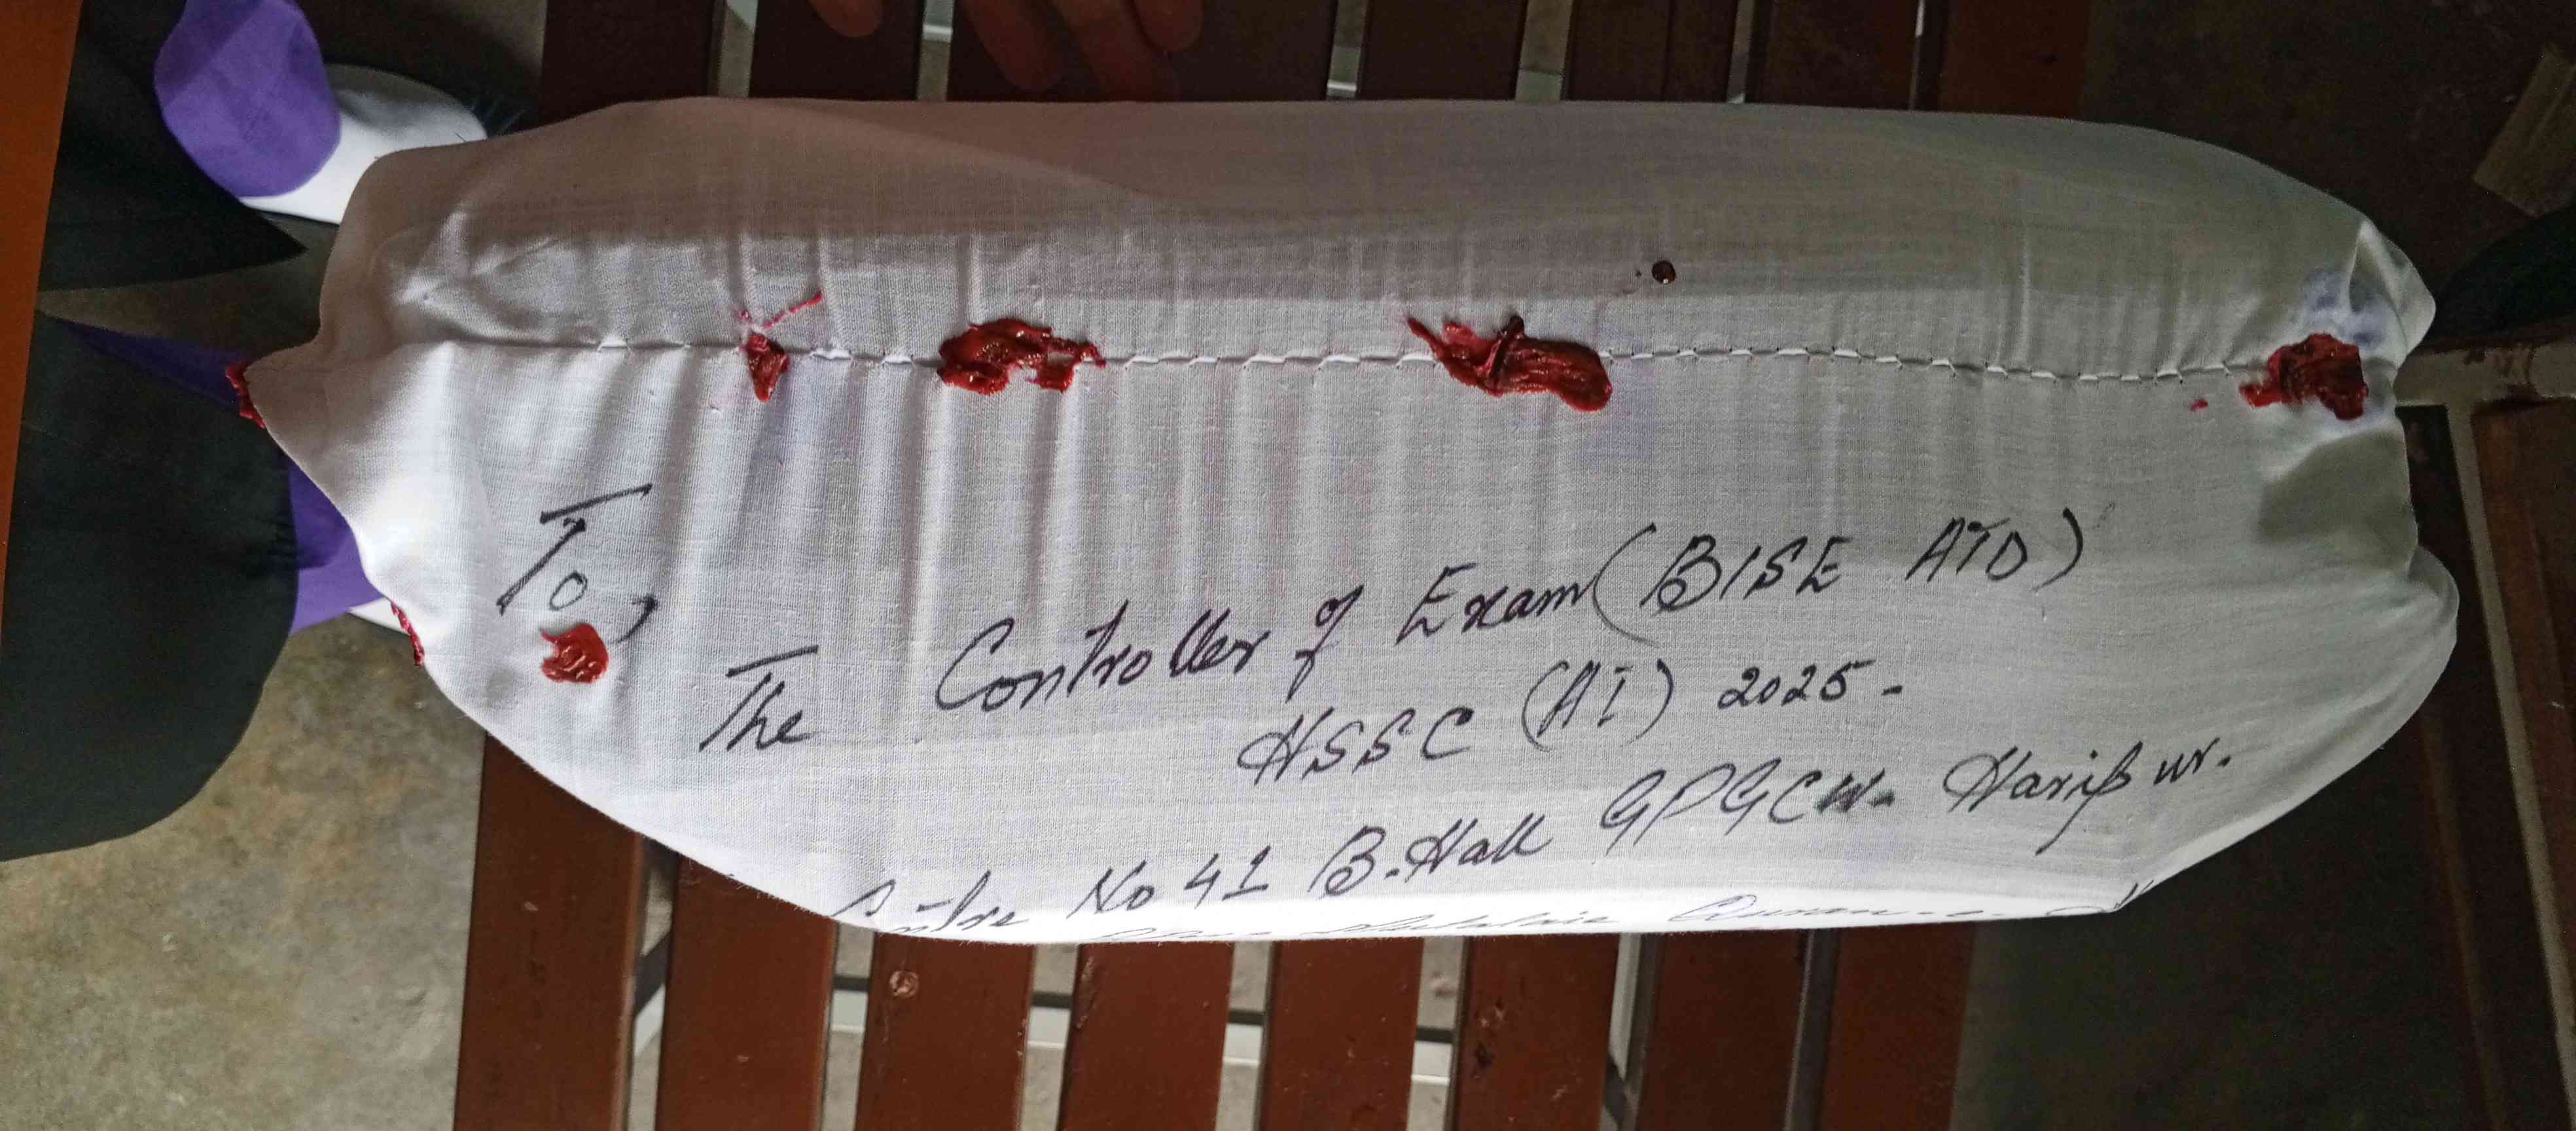 To,
The Controller of Exam (BISE ATD)
HSSC (AI) 2025.
Centre No 41 B.Hall GPGCW. Haripur.